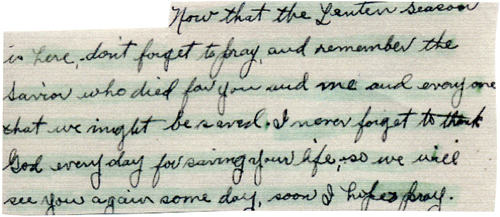 Now that the Lenten season
is here, don't forget to pray, and remember the
Savior who died for you and me and every one
that we might be saved. I never forget to thank
God every day for saving your life, so we will
see you again some day, soon I hope & pray.